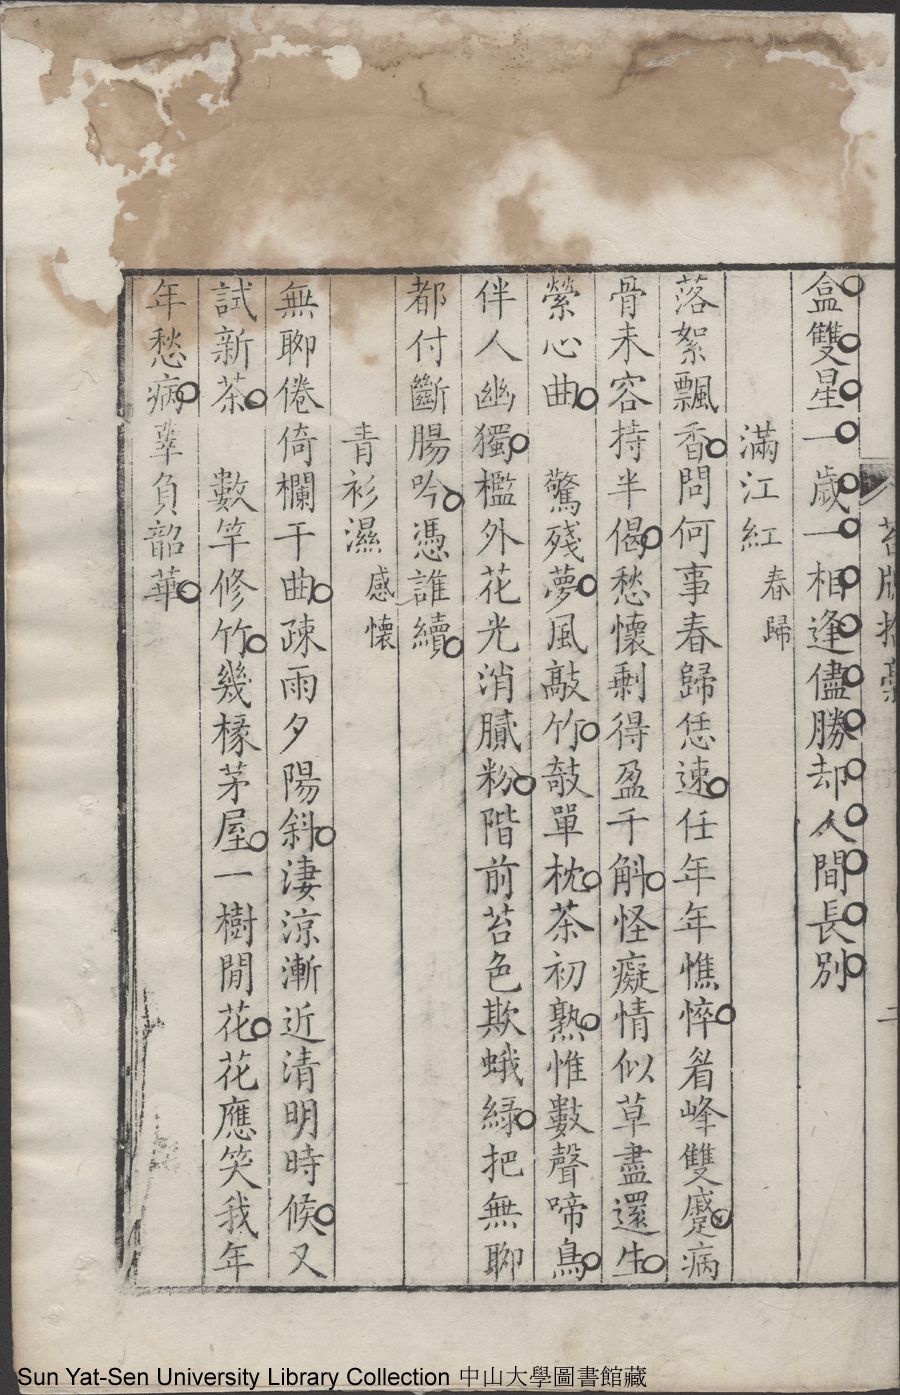 盒雙星一歲一相逢儘勝却人間長別
滿江紅 春歸
落絮飄香問何事春歸恁速任年年憔悴眉峰雙蹙病
骨未容持半偈愁懷剩得盈千斛怪癡情似草盡還生
縈心曲 驚殘夢風敲竹攲單枕茶初熟惟數聲啼鳥
伴人幽獨檻外花光消膩粉階前苔色欺蛾綠把無聊
都付斷腸吟憑誰續
青衫濕 感懷
無聊倦倚欄干曲疎雨夕陽斜淒涼漸近清明時候又
試新茶 數竿修竹幾椽茅屋一樹閒花花應笑我年
年愁病辜負韶華
二
Sun Yat-Sen University Library Collection 中山大學圖書館藏